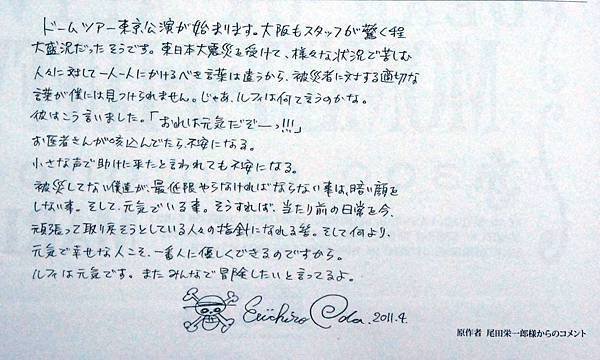 ドームツアー東京公演が始まります。大阪もスタッフが驚く程
大盛況だったそうです。東日本大震災を受けて、様々な状況で苦しむ
人々に対して一人一人にかけるべき言葉は違うから、被災者に対する適切な
言葉が僕には見つけられません。じゃあ、ルフィは何て言うのかな。
彼はこう言いました。「おれは元気だぞーっ!!!」
お医者さんが咳込んでたら、不安になる。
小さな声で助けに来たと言われても不安になる。
被災してない僕達が、最低限やらなければならない事は、暗い顔を
しない事。そして、元気でいる事。そうすれば、当たり前の日常を今、
頑張って取り戻そうとしている人々の指針になれる筈。そして何より、
元気で幸せな人こそ、一番人に優しくできるのですから。
ルフィは元気です。またみんなで冒険したいと言ってるよ。
Eiichiro Oda. 2011.4.
原作者 尾田栄一郎様からのコメント